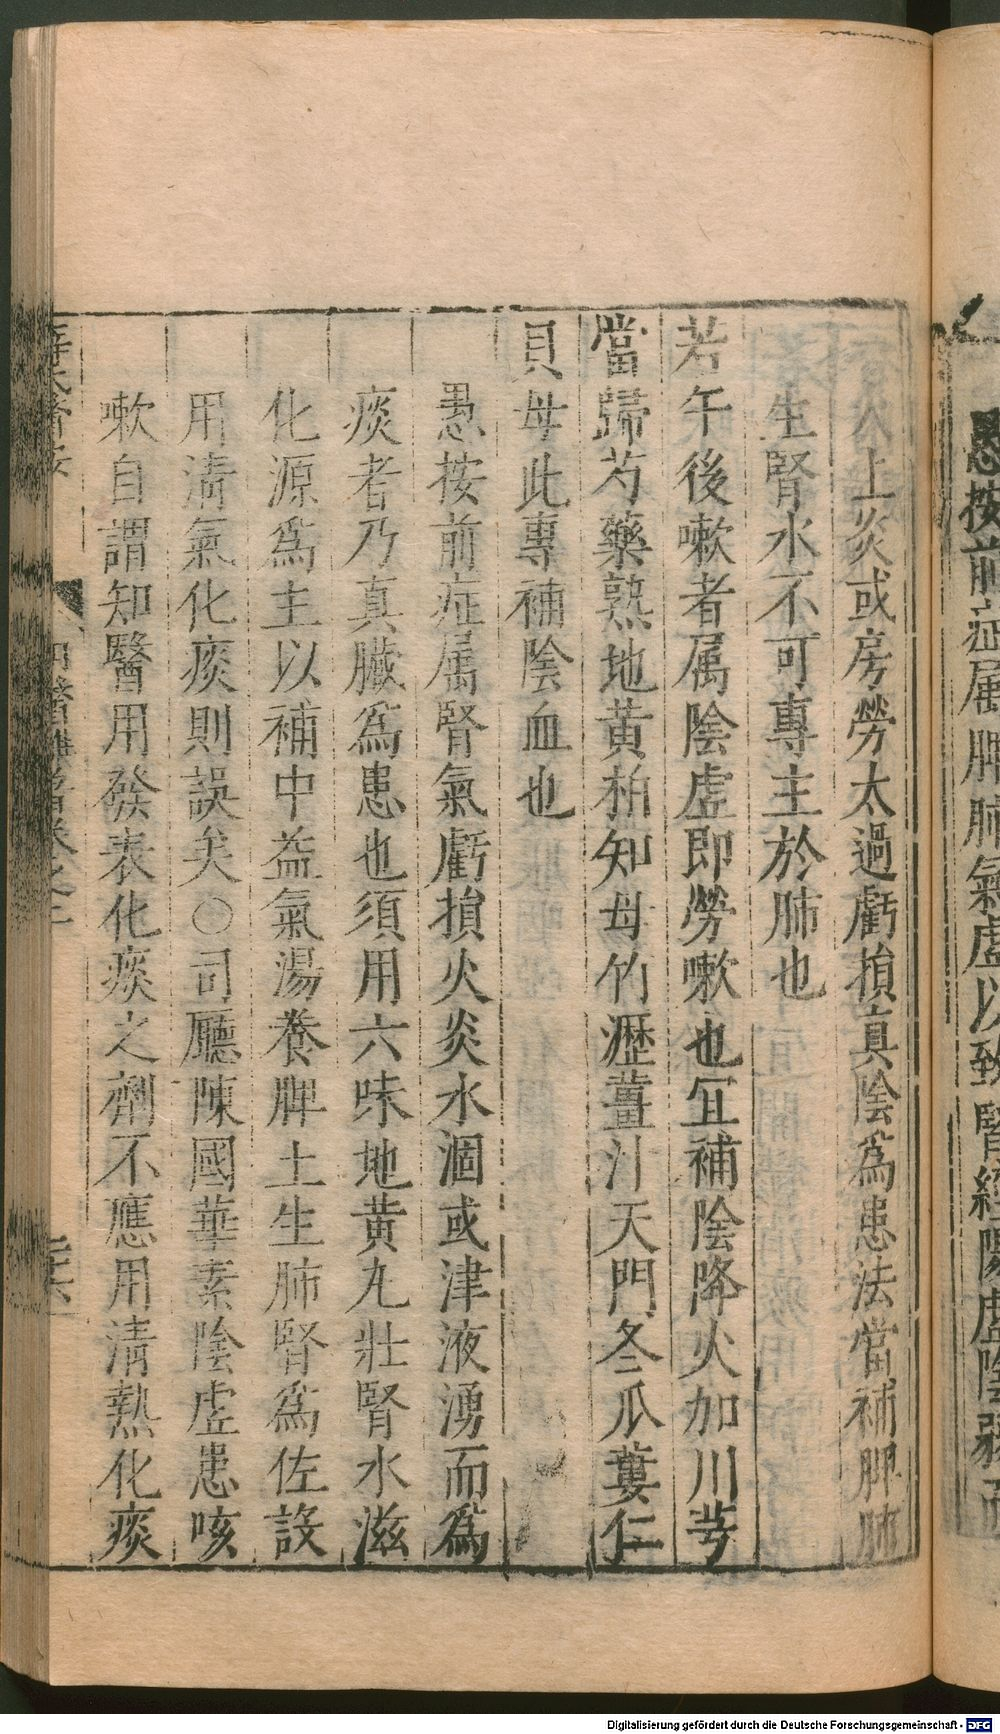 愚按前症属脾肺氣虚以致腎經陽虚陰弱而
火上炎或房勞太過虧損真陰為患法當補脾肺
生腎水不可專主於肺也
若午後嗽者属陰虚即勞嗽也冝補陰降火加川芎
當歸芍藥熟地黄柏知母竹瀝薑汁天門冬瓜蔞仁
貝母此專補陰血也
愚按前症属腎氣虧損火炎水涸或津液湧而為
痰者乃真臟為患也須用六味地黄丸壯腎水滋
化源為主以補中益氣湯養脾土生肺腎為佐設
用清氣化痰則誤矣○司廳陳國華素陰虚患咳
嗽自謂知醫用發表化痰之劑不應用清熱化痰
Digitalisierung gefördert durch die Deutsche Forschungsgemeinschaft - DFG